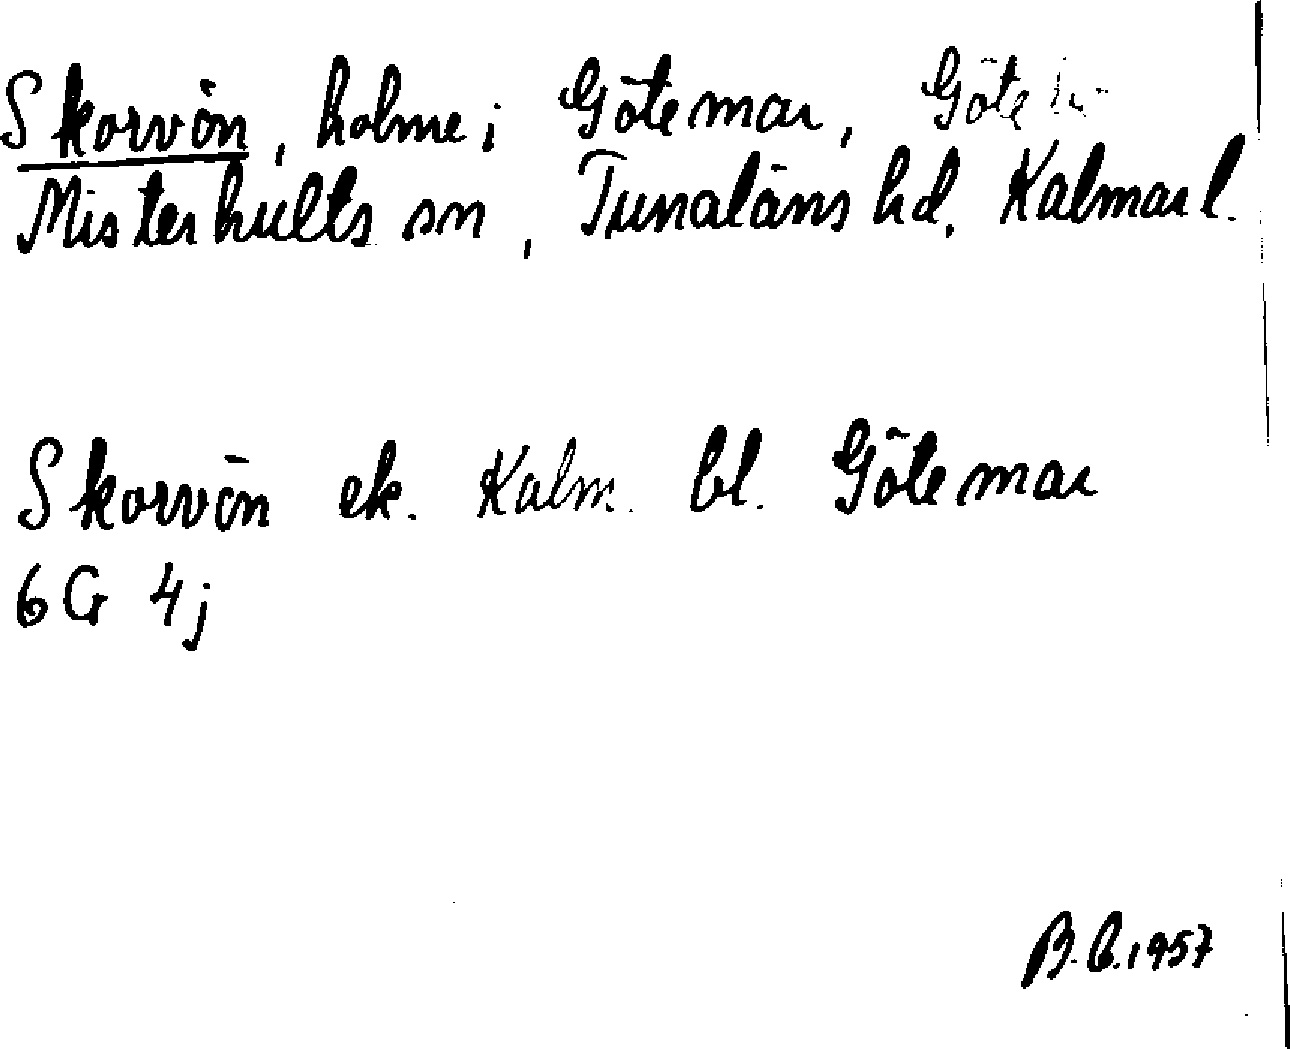 Skorvön, holme i Götemar,
Misterhults sn, Tunaläns hd, Kalmar l.
Skorvön ek. Kalm. bl. Götemar
6G 4j
B.C. 1957